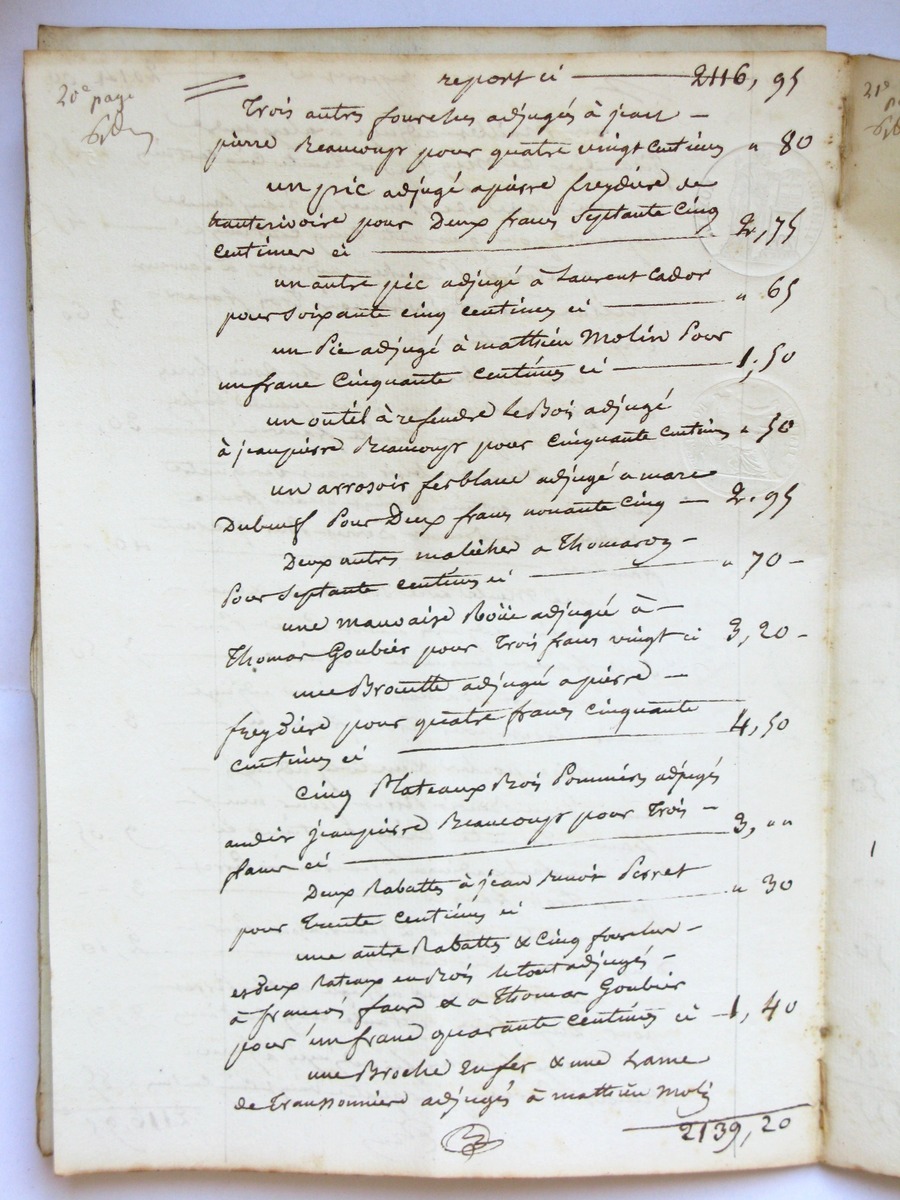 20e page
report ci 2116, 95
Trois autres fourches adjugés à jean
pierre Beaucoup pour quatre vingt centimes " 80
un pic adjugé a pierre freydiere de
hauterivoire pour Deux francs Septante Cinq
centimes ci 2, 75
un autre pic adjugé à Laurent Cador
pour Soixante cinq centimes ci " 65
un Pic adjugé à mathieu Molin Pour
un franc Cinquante Centimes ci 1, 50
un outil à refendre le Bois adjugé
à jeanpierre Beaucoup pour Cinquante Centimes " 50
un arrosoir ferblanc adjugé a marc
Dubeuf Pour Deux francs nonante Cinq 2. 95
Deux autres a Thomaron
Pour Septante centimes ci " 70
une mauvaise Roüe adjugée à
Thomas Goubier pour Trois francs vingt ci 3, 20
une Brouette adjugée a pierre
freydiere pour quatre francs Cinquante
centimes ci 4, 50
Cinq Plateaux Bois Pommiers adjugés
audit jeanpierre Beaucoup pour Trois
francs ci 3, " "
Deux Rabattes à jean Perret
pour Trente Centimes ci " 30
une autre Rabattes & Cinq fourches
et deux Rateaux en Bois le tout adjugés
à francois faure & a Thomas Goubier
pour un franc quarante centimes ci 1, 40
une Broche en fer & une Lame
de Transonniere adjugés à mathieu Molin
2139, 20
21e